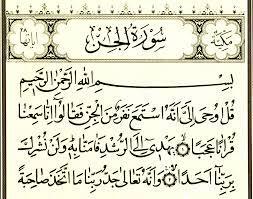 مكية سُورَةُ الجِنِّ آياتها ٢٨
بِسْمِ اللَّهِ الرَّحْمَٰنِ الرَّحِيمِ
قُلْ أُوحِيَ إِلَيَّ أَنَّهُ اسْتَمَعَ نَفَرٌ مِنَ الْجِنِّ فَقَالُوا إِنَّا سَمِعْنَا
قُرْآنًا عَجَبًا ١ يَهْدِي إِلَى الرُّشْدِ فَآمَنَّا بِهِ وَلَنْ نُشْرِكَ
بِرَبِّنَا أَحَدًا ٢ وَأَنَّهُ تَعَالَى جَدُّ رَبِّنَا مَا اتَّخَذَ صَاحِبَةً